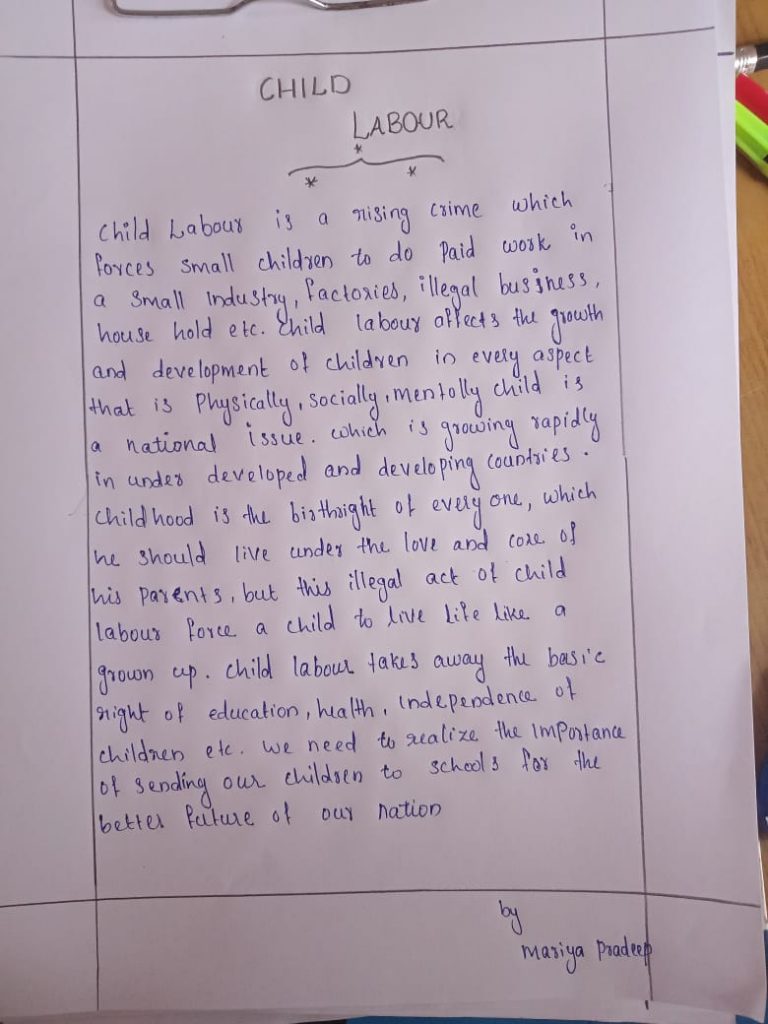 CHILD
LABOUR
Child Labour is a rising crime which
forces small children to do Paid work in
a small Industry, factories, illegal business,
house hold etc. Child labour affects the growth
and development of children in every aspect
that is Physically, socially, mentolly child is
a national issue. which is growing rapidly
in under developed and developing countries.
Childhood is the birthright of every one, which
he should live under the love and core of
his parents, but this illegal act of child
labour force a child to live life like a
grown up. Child labour takes away the basic
right of education, health, independence of
children etc. we need to realize the Importance
of sending our children to schools for the
better future of our nation
by
Mariya Pradeep